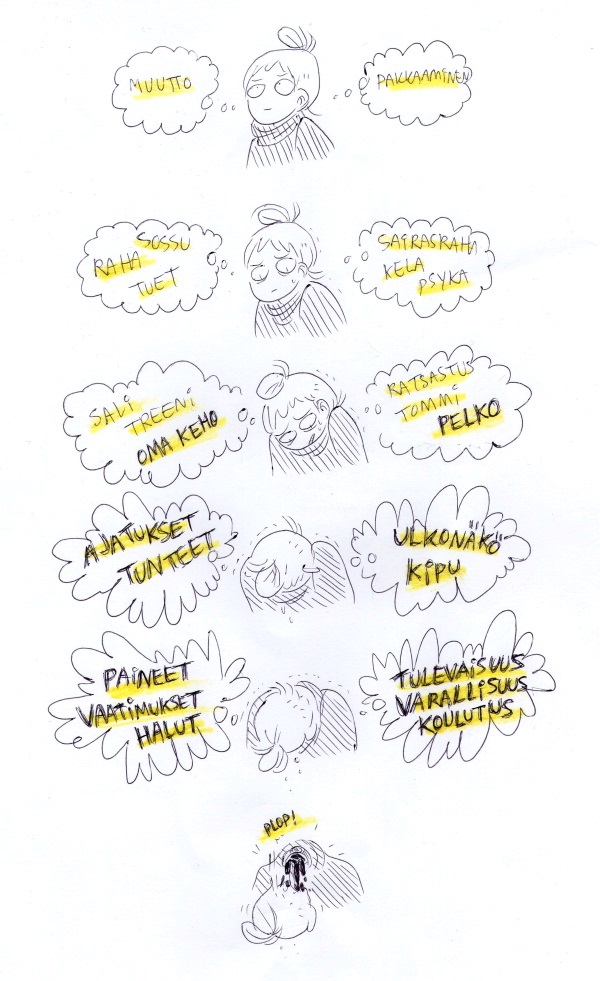 MUUTTO
PAKKAAMINEN
SOSSU
RAHA
TUET
SAIRASRAHA
KELA
PSYKA
SALI
TREENI
OMA KEHO
RATSASTUS
TOMMI
PELKO
AJATUKSET
TUNTEET
ULKONÄKÖ
KIPU
PAINEET
VAATIMUKSET
HALUT
TULEVAISUUS
VARALLISUUS
KOULUTUS
PLOP!